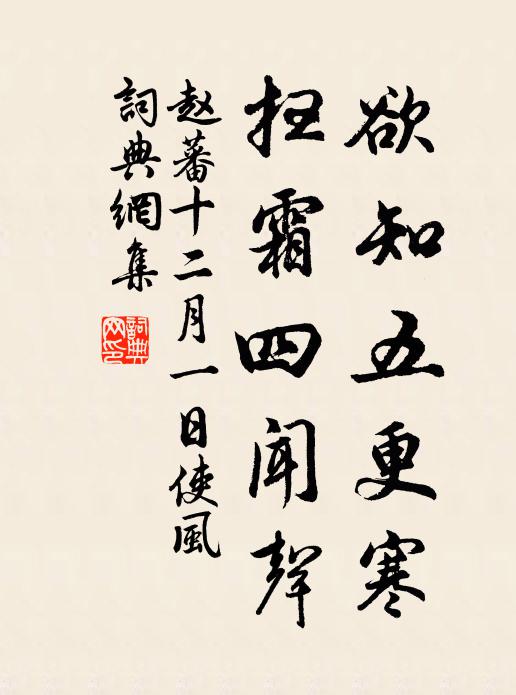 欲知五更寒
扫霜四闻聲
赵蕃十二月一日使風
詞典網集
詞典网印